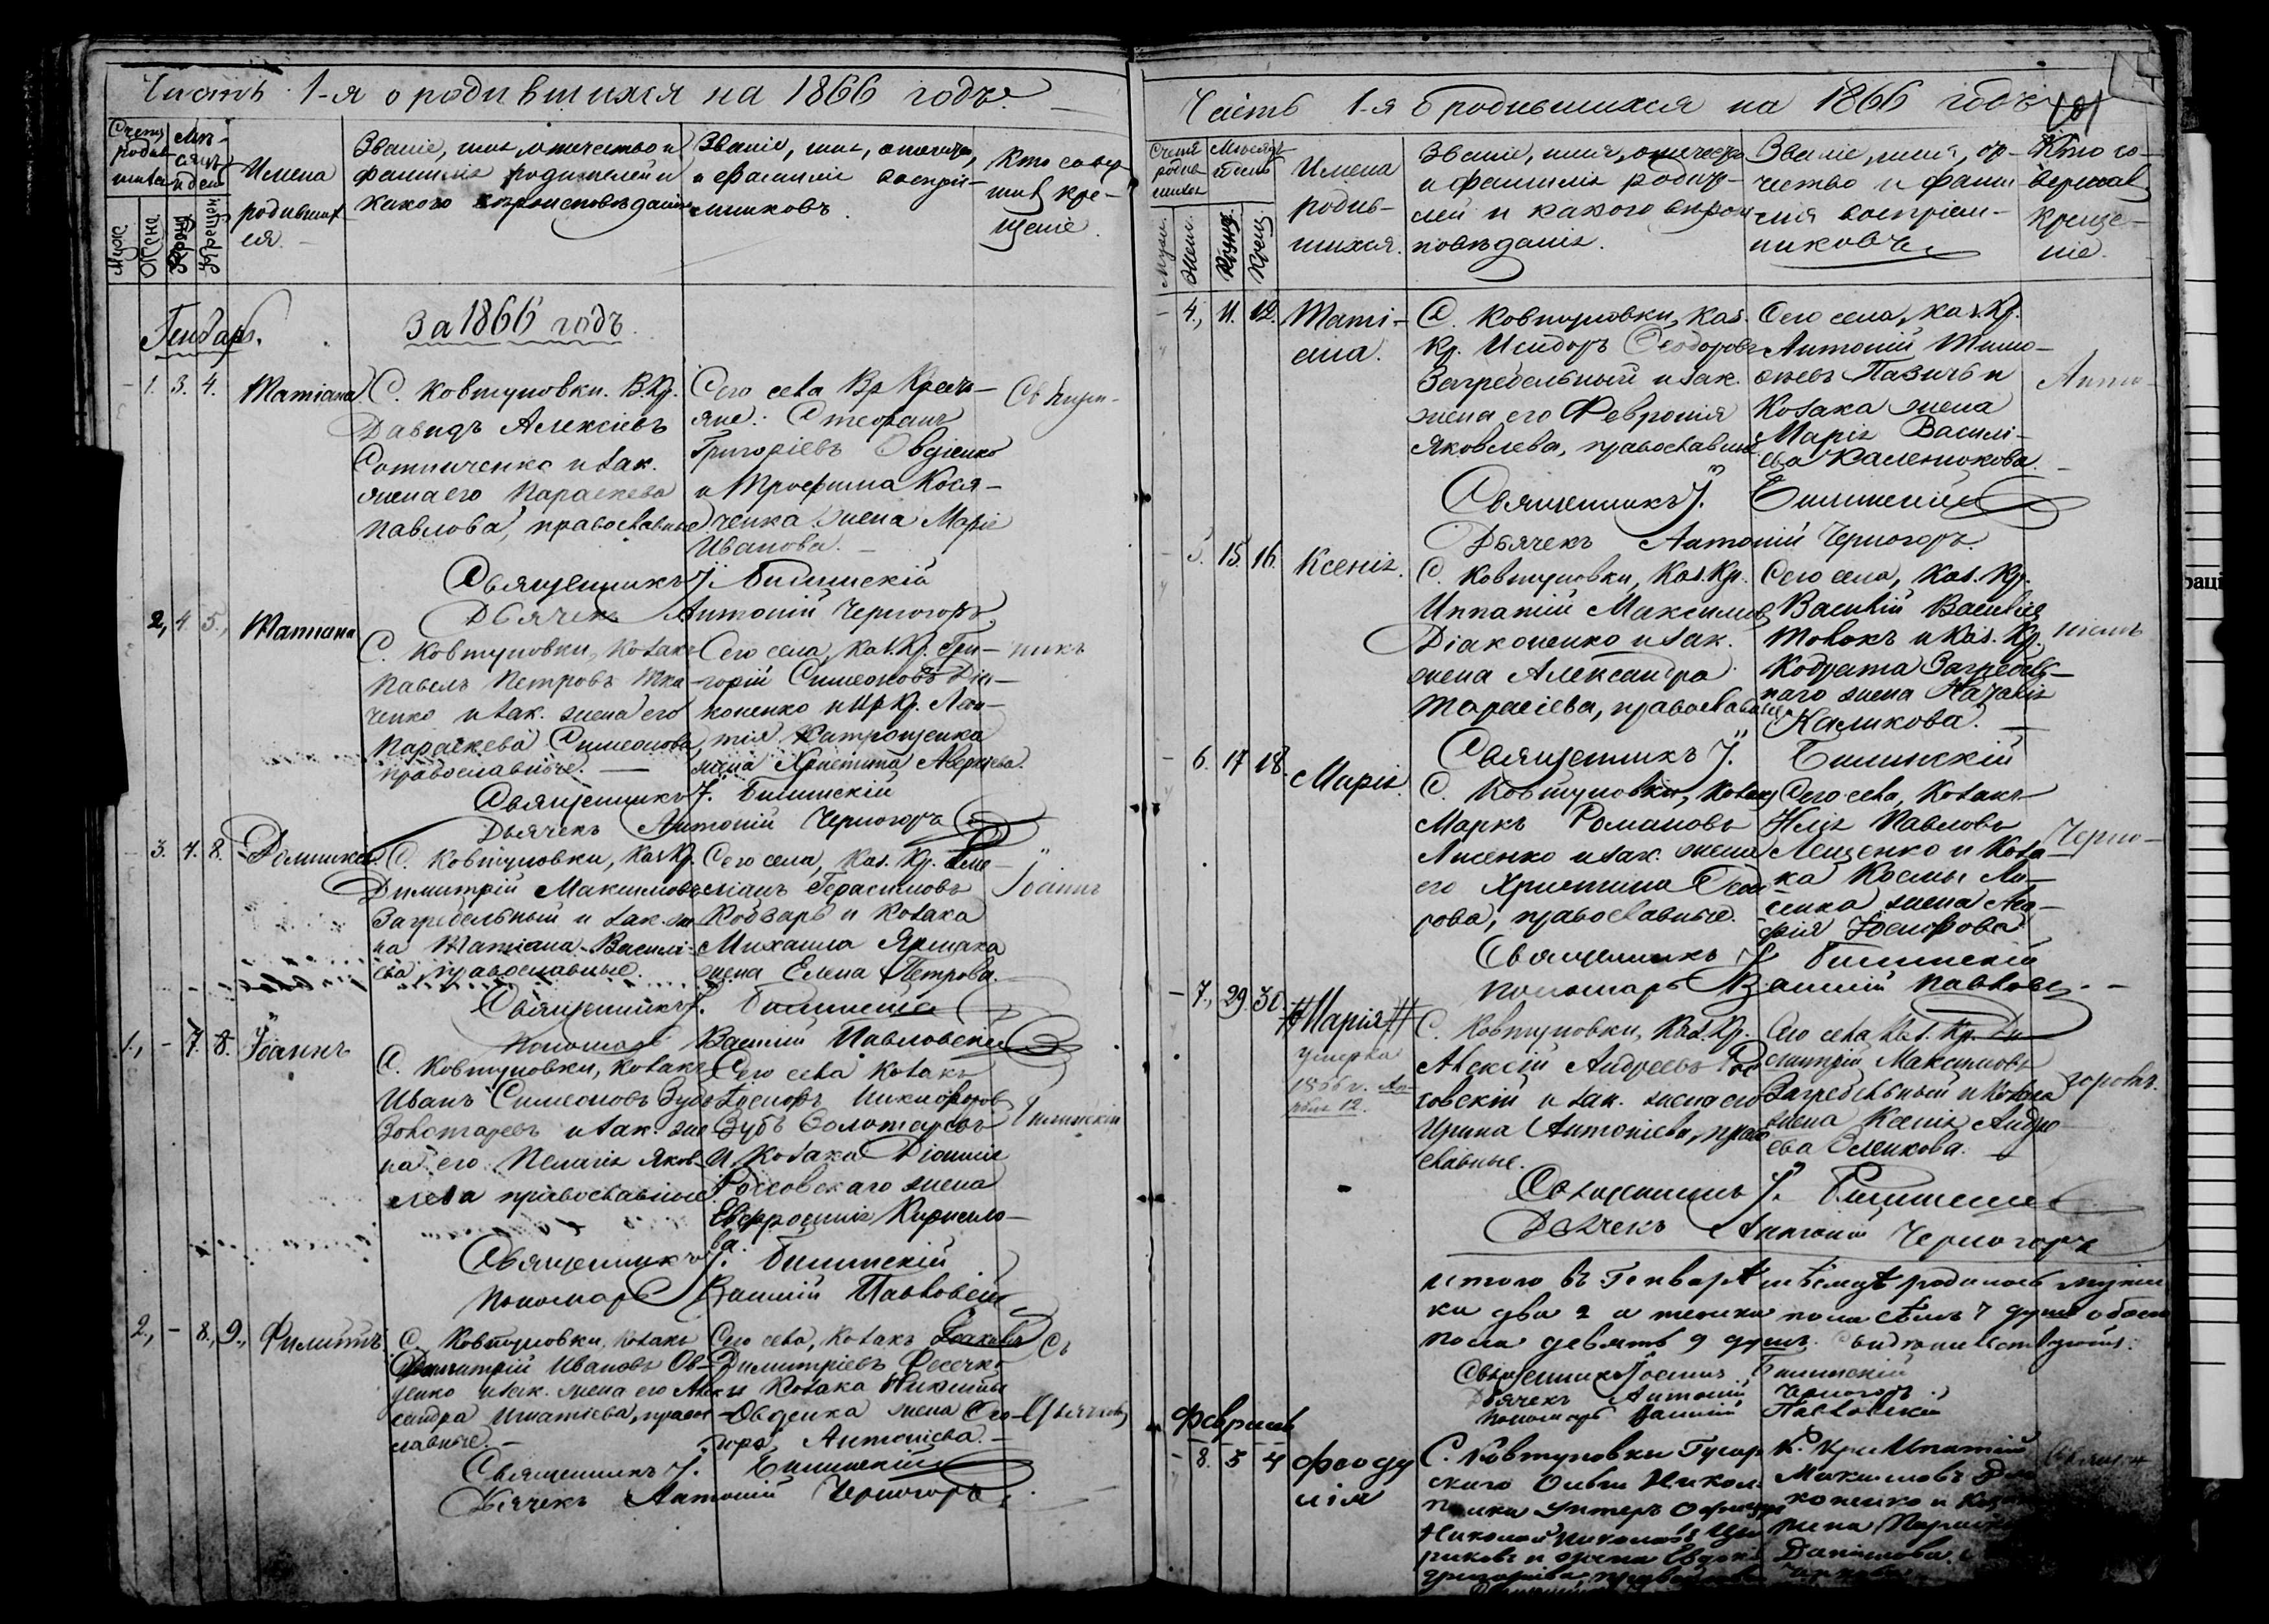 Часть 1-я о родившихся на 1866 годъ.
Счетъ родив-шихся
Мѣ-сяцъ и день
Муж.
Жене.
рожден
крещен
Имена
родивших
ся.
Званіе, имя, отчество и
фамилія родителей и
какого вѣроисповѣданія
Званіе, имя, отчество,
и фамиліе воспріе-
мниковъ.
Кто совер
шив кре-
щеніе.
Генварь.
За 1866 годъ.
1. 3. 4. Татіана.
С. Ковтуновки. В.Кр.
Давидъ Алексіевъ
Сотниченко и зак.
жена его Параскева
Павлова, православные
Сего села Вр Кресть-
яне: Стефанъ
Григоріевъ Овдіенко
и Трофима Кося-
ченка жена Марія
Иванова.
Священникъ І. Билинскій
Дьячекъ Антоній Черногоръ
2, 4. 5., Татіана
С. Ковтуновки, Козакъ
Павелъ Петровъ Тка-
ченко и зак. жена его
Параскева Симеонова
православные.
Сего села, Каз. Кр. Гри-
горій Симеоновъ Діа-
коненко и Вр Кр. Леон-
тія Митрощенка
жена Христина Аверкіева.
никъ
Священникъ І. Билинскій
Дьячекъ Антоній Черногоръ
3. 7. 8. Домника.
С. Ковтуновки, Каз Кр.
Димитрій Максимовъ
Загребельный и зак. же
на Татіана Василі-
ева, православные.
Сего села, Каз. Кр. Еме
ліанъ Герасимовъ
Кобзарь и Козака
Михаила Ярмака
жена Елена Петрова.
Іоаннъ
Священникъ І. Билинскій
Пономарь Василій Павловскій
1., - 7. 8. Іоаннъ
С. Ковтуновки, Козакъ
Иванъ Симеоновъ Зубъ
Золотаревъ и зак. же
на его Пелагія Яков-
лева православные.
Сего села Козакъ
Никифоров
Зубъ Золотаревъ
и Козака Діонисія
Росховскаго жена
Евфросинія Кирилло-
ва.
Билинскій
Священникъ І. Билинскій
Пономарь Василій Павловскій
2., - 8., 9., Филиппъ
С. Ковтуновки, Козакъ
Димитрій Ивановъ Ов-
денко и зак. жена его Алек
сандра Игнатіева, право
славные.
Сего села, Козакъ Іаковъ
Димитріевъ Фесечко
и Козака Никиты
Овденка жена Ѳео-
дора Антоніева.
Съ
дьячком
Священникъ І. Билинскій
Дьячекъ Антоній Черногоръ
Часть 1-я о родившихся на 1866 годъ
Счетъ родив-шихся
Мѣсяцъ и день
Муж.
Жен.
Рожд.
Крещ.
Имена
родив-
шихся.
Званіе, имя, отчество
и фамилія родите-
лей и какого вѣроис
повѣданія.
Званіе, имя, от-
чество и фами
лія воспріем-
никовъ.
Кто со-
вершал
Креще-
ніе.
- 4., 11. 12. Таті-
ана.
С. Ковтуновки, Каз.
Кр. Исидоръ Ѳеодоровъ
Загребельный и зак.
жена его Февронія
Яковлева, православные
Сего села, Каз. Кр.
Антоній Тимо-
ѳеевъ Пазичъ и
Козака жена
Марія Василі-
ева Каленюкова.
Анто-
Священникъ І. Билинскій
Дьячекъ Антоній Черногоръ.
- 5. 15. 16. Ксенія.
С. Ковтуновки, Каз. Кр.
Ипатій Максимов
Діаконенко и зак.
жена Александра
Тарасіева, православные
Сего села, Каз. Кр.
Василій Василіев
Товокъ и Каз. Кр.
Кодрата Загребель-
наго жена Наталія
Каликова.
ніемъ
Священникъ І. Билинскій
- 6. 17 18. Марія.
С. Ковтуновки, Козакъ
Маркъ Романовъ
Лисенко и зак. жена
его Христина Ѳеодо
рова, православные.
Сего села, Козакъ
Илія Павловъ
Лещенко и Коза-
ка Косьмы Ли-
сенка жена Ага-
фія
Черно-
Священникъ І. Билинскій
Пономарь Василій Павловскій
- 7., 29. 30. Марія
умерла
1866 г. Ап-
рѣля 12.
С. Ковтуновки, Каз. Кр.
Алексій Андреевъ Рос
ховскій и зак. жена его
Ирина Антоніева, право
славные.
Сего села Каз. Кр. Ди-
митрій Максимовъ
Загребельный и Козака
жена Ксенія Андре
ева Оленкова.
горовъ.
Священникъ І. Билинскій
Дьячекъ Антоній Черногоръ
итого въ Генварѣ мѣсяцѣ родилось мужес
ка два 2 а женска пола сѣмь 7 душъ обоего
пола девять 9 душъ.
Священникъ Іоаннъ Билинскій
Дьячекъ Антоній Черногоръ
Пономарь Василій Павловскій
Февраль
- 8. 3 4 Феоду
лія
С. Ковтуновки Гусар
скаго Николая
полка Унтеръ Офицеръ
Николай
и жена Евдокі
Григоріева, православ
К. Кр. Ипатій
Максимовъ Діа
коненко и
жена Параске
Даніилова